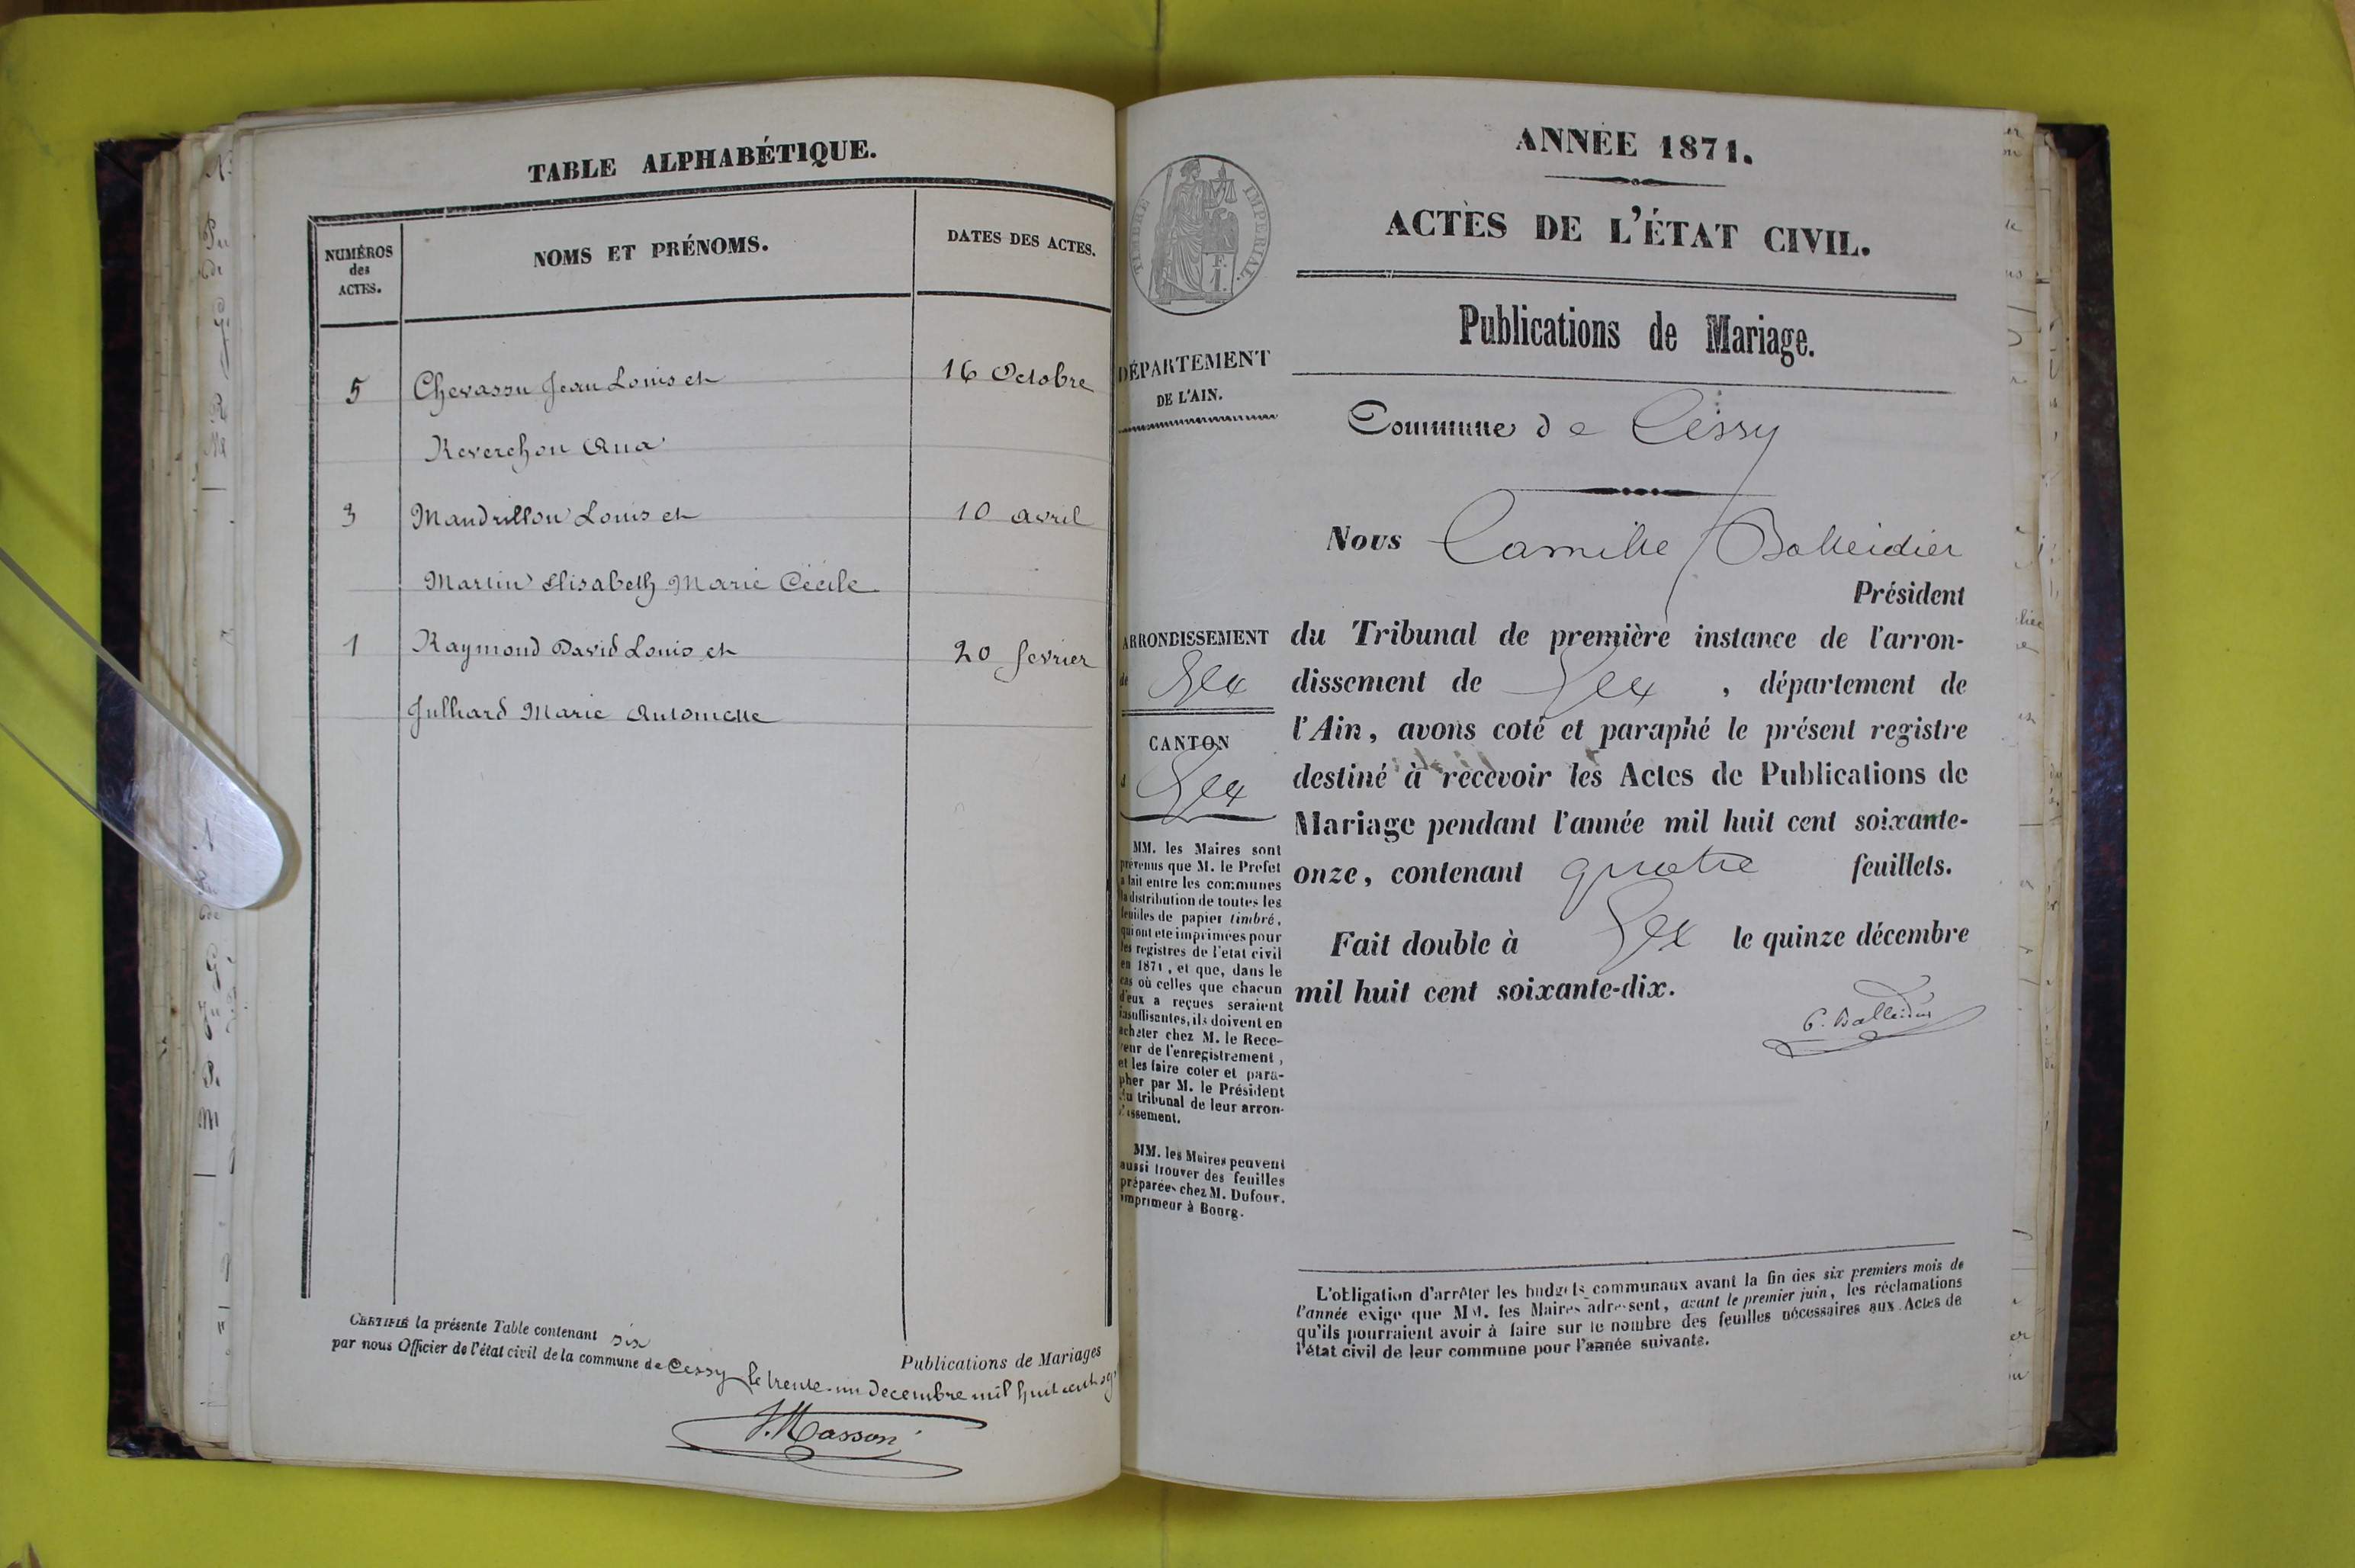 TABLE ALPHABÉTIQUE.
NUMÉROS
des
ACTES.
NOMS ET PRÉNOMS.
DATES DES ACTES.
5 Chevassu Jean Louis et 16 Octobre
Reverchon Ana
3 Mandrillon Louis et 10 avril
Martin Elisabeth Marie Cécile
1 Raymond David Louis et 20 fevrier
Julliard Marie Antoinette
CERTIFIÉ la présente Table contenant six Publications de Mariages
par nous Officier de l'état civil de la commune de Cessy le trente-un decembre mil huit cent
J. Masson
ANNÉE 1871.
ACTES DE L'ÉTAT CIVIL.
TIMBRE IMPERIAL.
F.
1.
Publications de Mariage.
DÉPARTEMENT
DE L'AIN.
Commune de Cessy
Nous Camille Balleidier
Président
ARRONDISSEMENT
de Gex
CANTON
d Gex
du Tribunal de première instance de l'arron-
dissement de Gex , département de
l'Ain, avons coté et paraphé le présent registre
destiné à recevoir les Actes de Publications de
Mariage pendant l'année mil huit cent soixante-
onze, contenant quatre feuillets.
Fait double à Gex le quinze décembre
mil huit cent soixante-dix.
C. Balleidier
MM. les Maires sont
prévenus que M. le Prefet
a fait entre les communes
la distribution de toutes les
feuilles de papier timbré,
qui ont ete imprimées pour
les registres de l'etat civil
en 1871, et que, dans le
cas où celles que chacun
d'eux a reçues seraient
insuffisantes, ils doivent en
acheter chez M. le Rece-
veur de l'enregistrement,
et les faire coter et para-
pher par M. le Président
du tribunal de leur arron-
dissement.
MM. les Maires peuvent
aussi trouver des feuilles
préparées chez M. Dufour,
imprimeur à Bourg.
L'obligation d'arrêter les budgets communaux avant la fin des six premiers mois de
l'année exige que MM. les Maires adressent, avant le premier juin, les réclamations
qu'ils pourraient avoir à faire sur le nombre des feuilles nécessaires aux Actes de
l'état civil de leur commune pour l'année suivante.